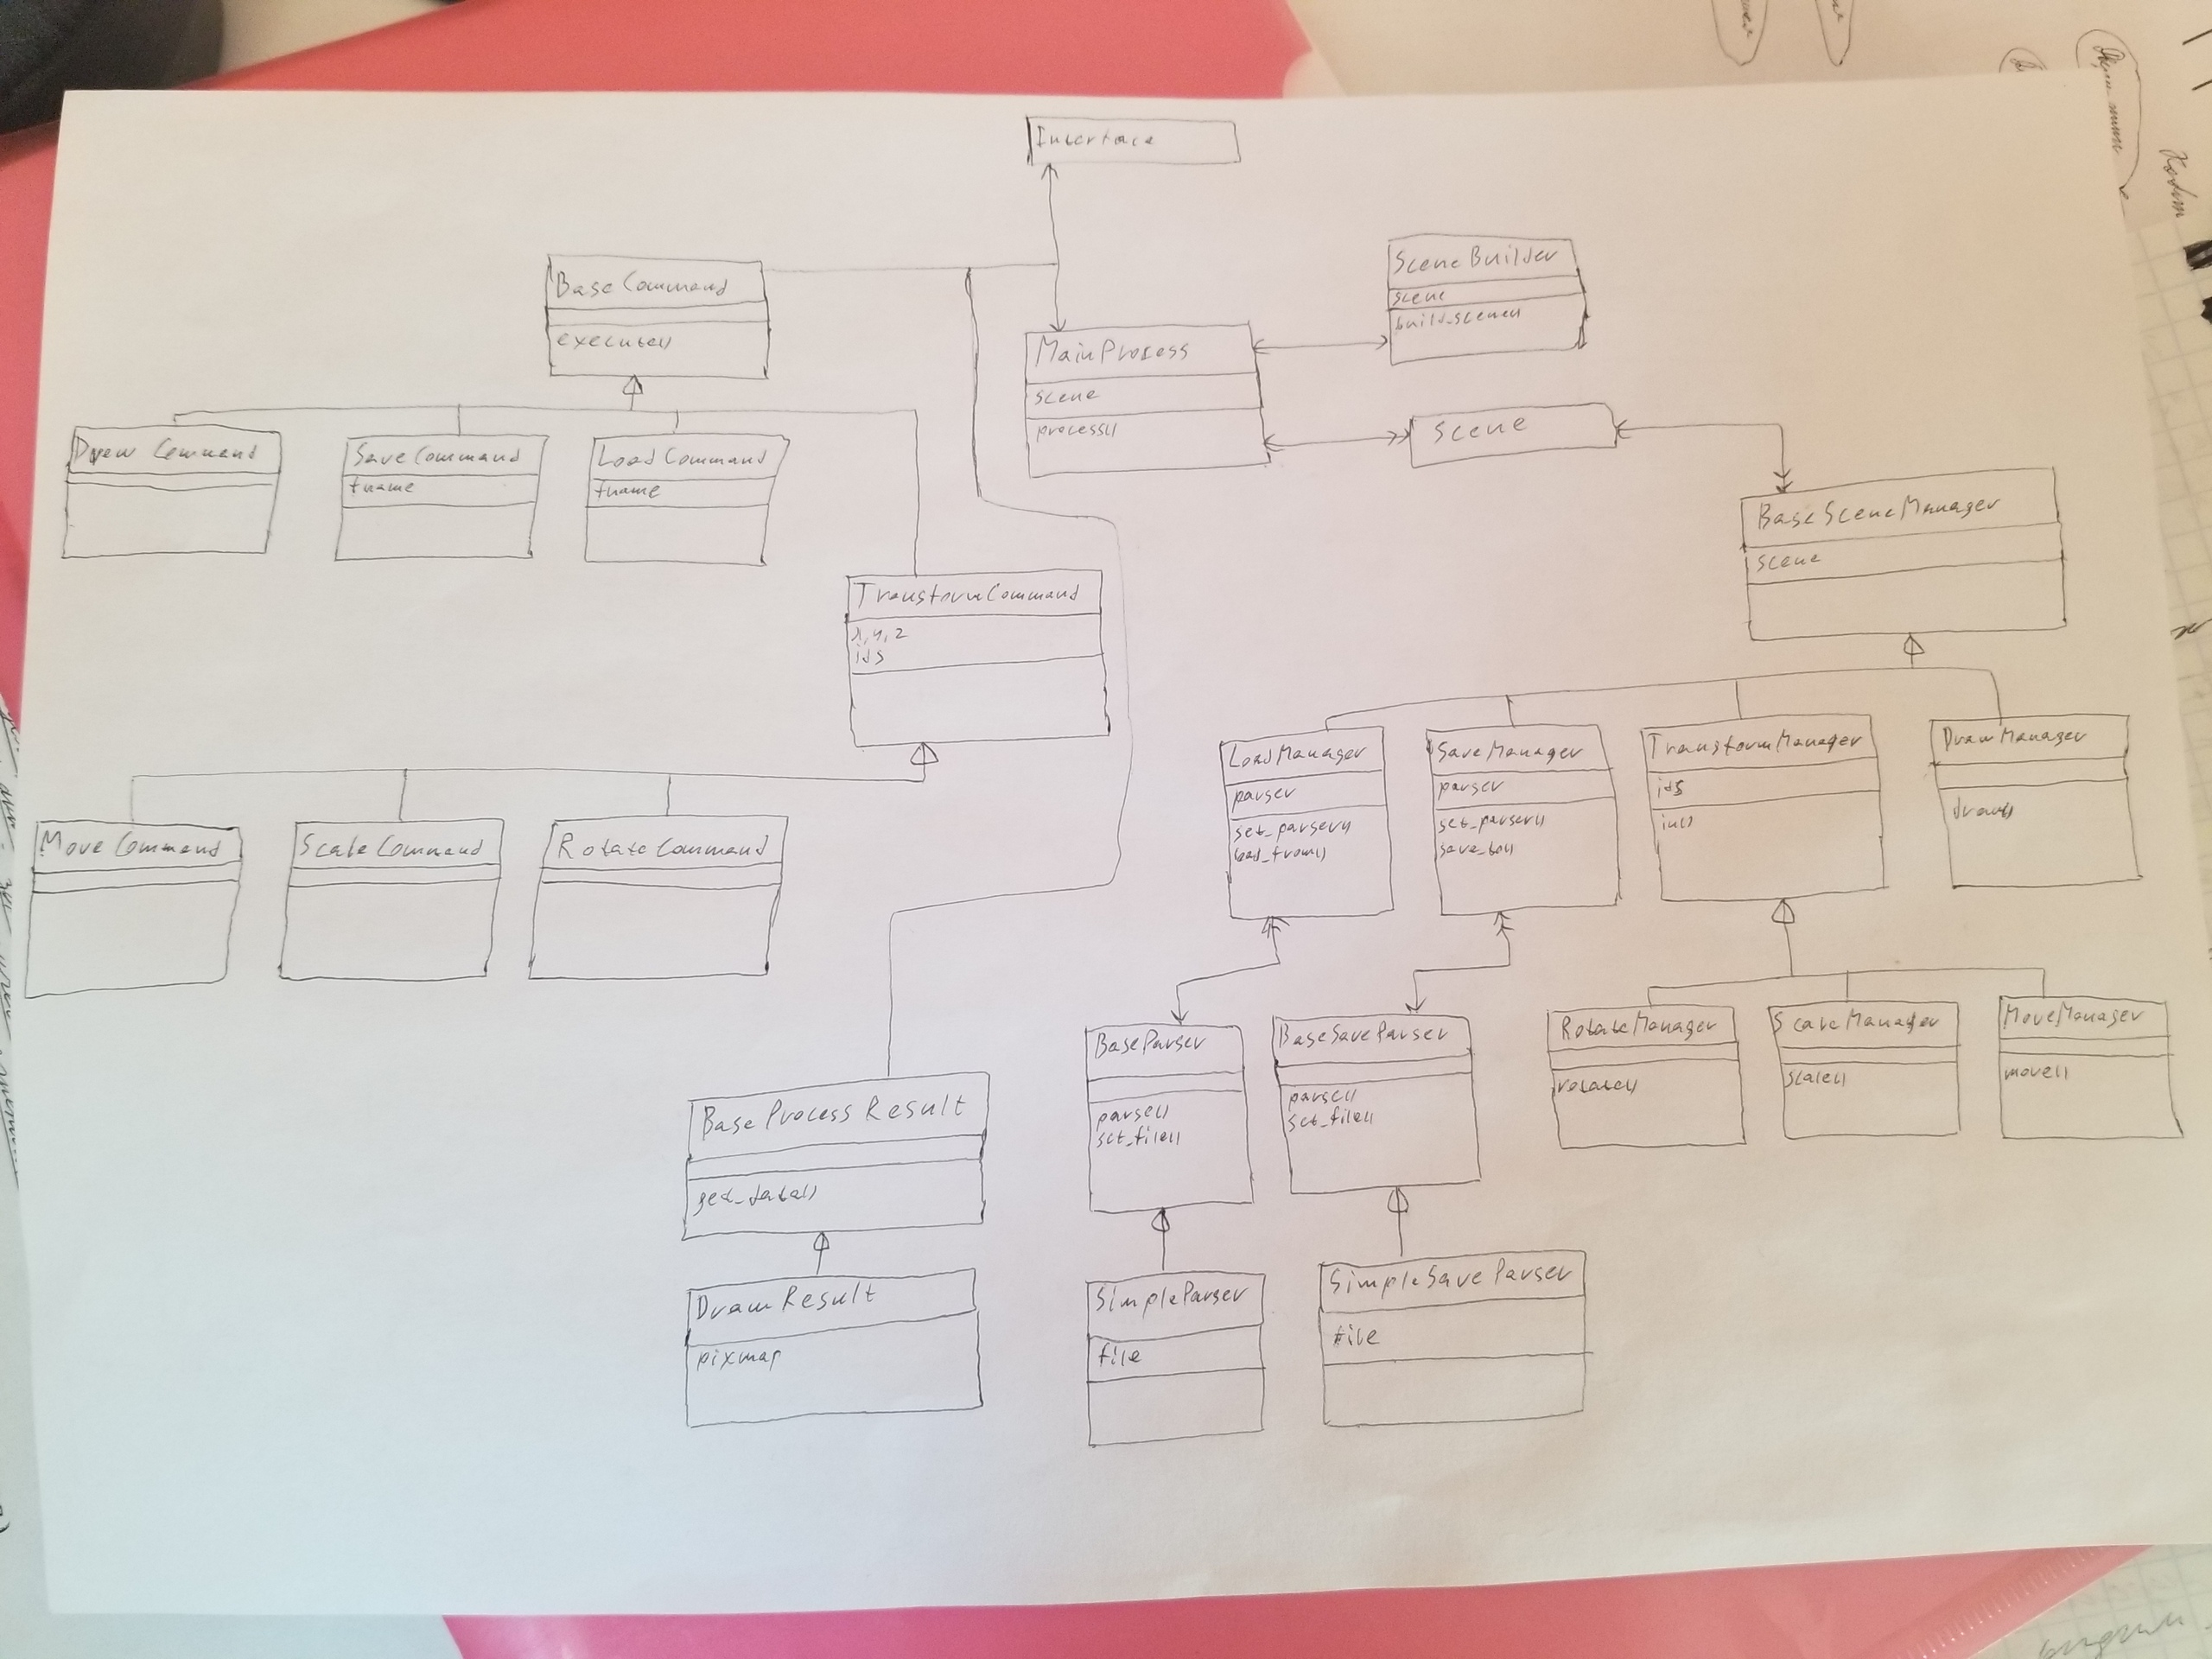 Interface
BaseCommand
execute()
SceneBuilder
scene
build_scene()
MainProcess
scene
process()
Scene
Draw Command
SaveCommand
fname
LoadCommand
fname
BaseSceneManager
scene
TransformCommand
x, y, z
ids
LoadManager
parser
set_parser()
load_from()
SaveManager
parser
set_parser()
save_to()
TransformManager
ids
DrawManager
draw()
MoveCommand
ScaleCommand
RotateCommand
BaseParser
parse()
set_file()
BaseSaveParser
parse()
set_file()
RotateManager
rotate()
ScaleManager
scale()
MoveManager
move()
BaseProcessResult
get_data()
DrawResult
pixmap
SimpleParser
file
SimpleSaveParser
file